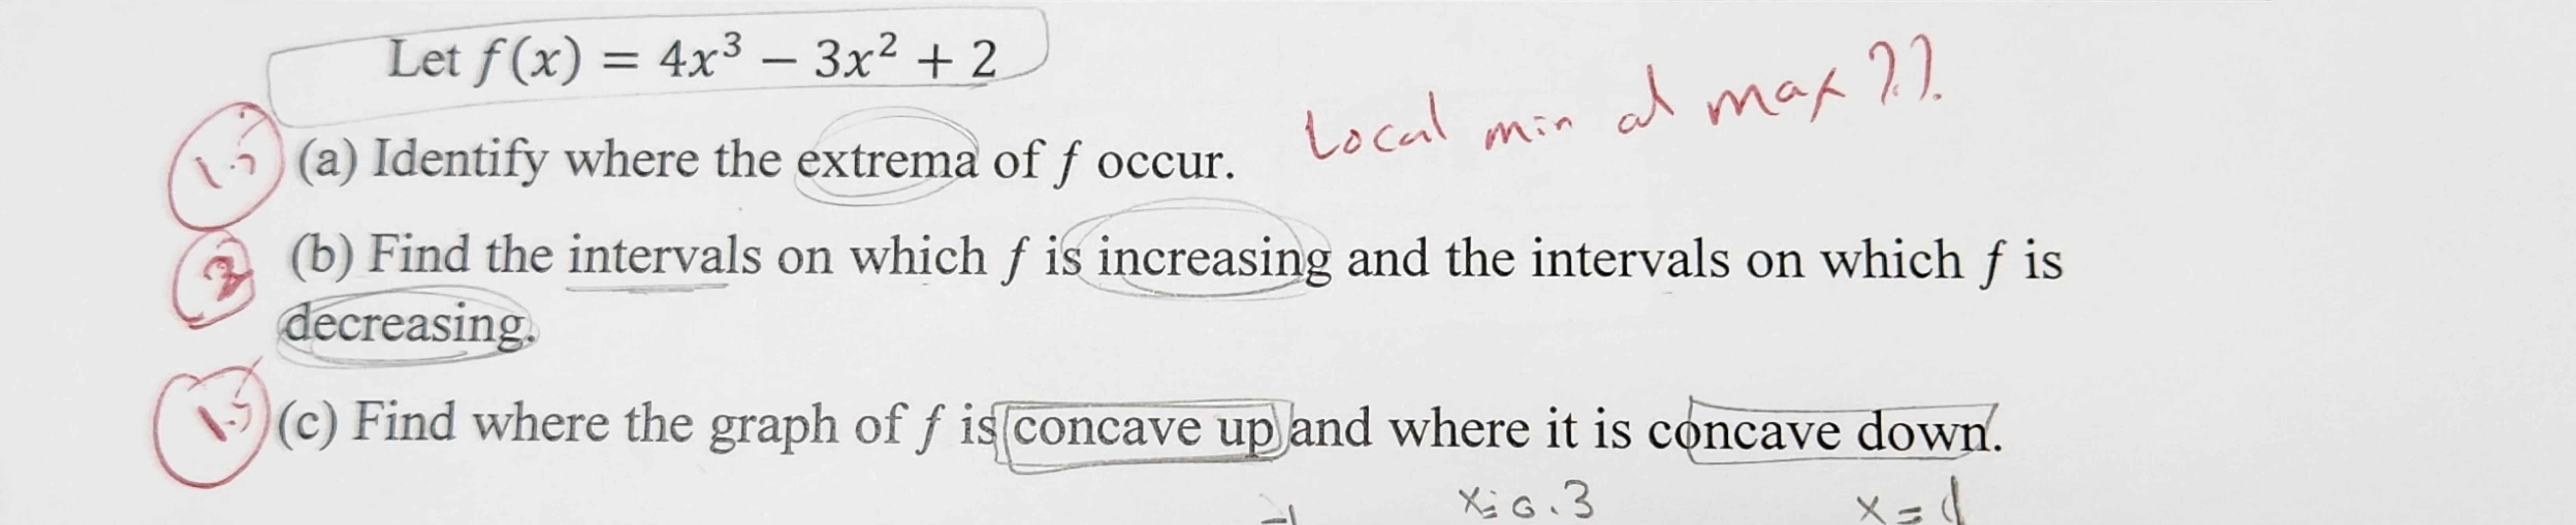 Let f(x) = 4x³ − 3x² + 2
Local min at max ??
1.5 (a) Identify where the extrema of f occur.
2 (b) Find the intervals on which f is increasing and the intervals on which f is
decreasing.
1.5 (c) Find where the graph of f is concave up and where it is concave down.
-1 x=0.3 x=1